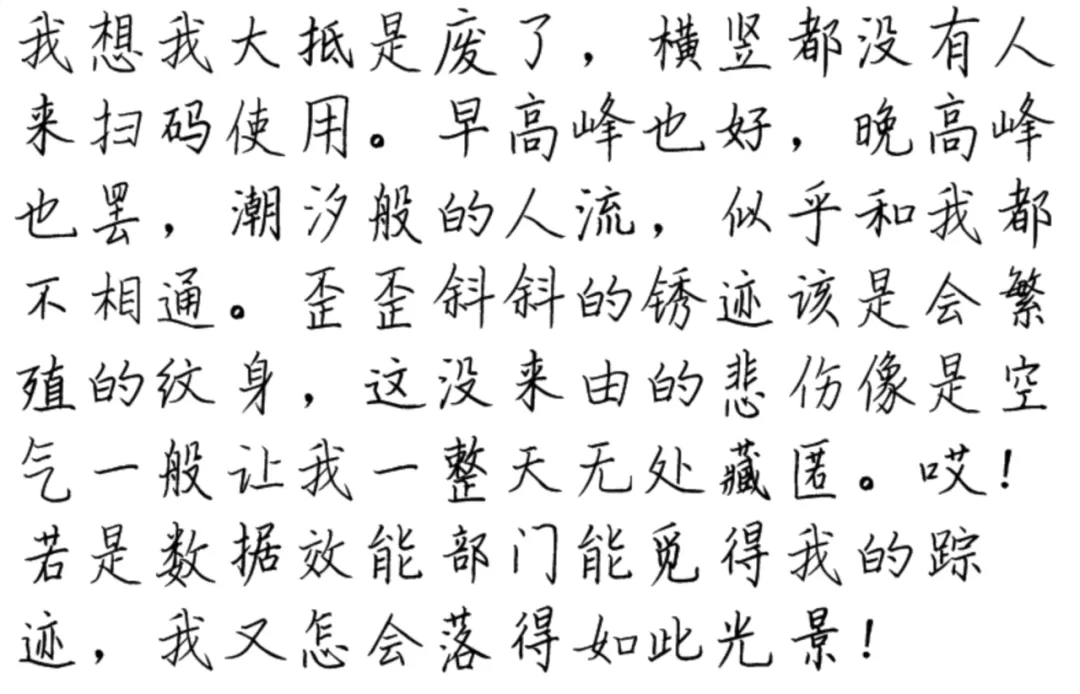 我想我大抵是废了，横竖都没有人
来扫码使用。早高峰也好，晚高峰
也罢，潮汐般的人流，似乎和我都
不相通。歪歪斜斜的锈迹该是会繁
殖的纹身，这没来由的悲伤像是空
气一般让我一整天无处藏匿。哎！
若是数据效能部门能觅得我的踪
迹，我又怎会落得如此光景！